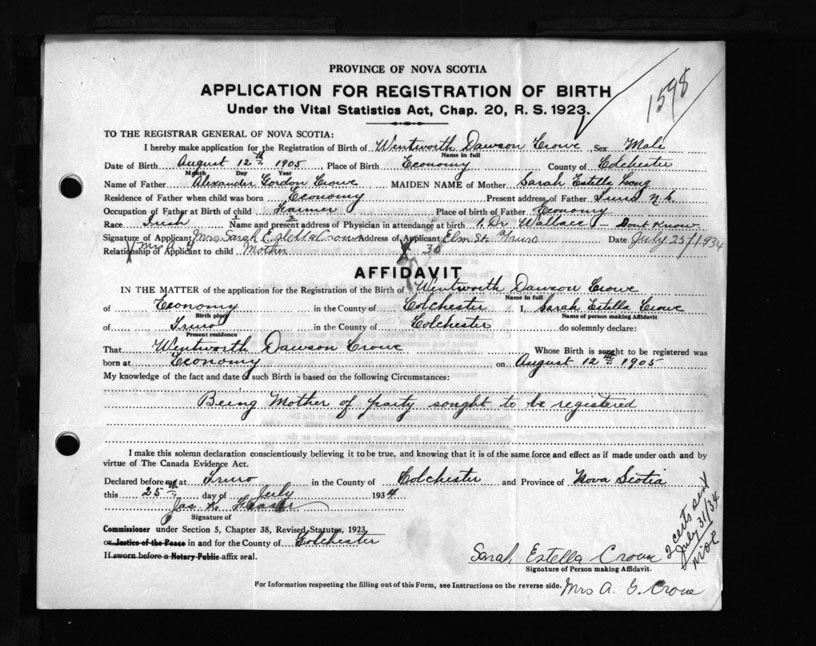 PROVINCE OF NOVA SCOTIA
1598
APPLICATION FOR REGISTRATION OF BIRTH
Under the Vital Statistics Act, Chap. 20, R. S. 1923.
TO THE REGISTRAR GENERAL OF NOVA SCOTIA:
I hereby make application for the Registration of Birth of Wentworth Dawson Crowe, Sex Male
Name in full
Date of Birth August 12th 1905, Place of Birth Economy County of Colchester
Month Day Year
Name of Father Alexander Gordon Crowe MAIDEN NAME of Mother Sarah Estella Long
Residence of Father when child was born Economy Present address of Father Truro N.S.
Occupation of Father at Birth of child Farmer Place of birth of Father Economy
Race Irish Name and present address of Physician in attendance at birth Dr Wallace Dont Know
Signature of Applicant Mrs Sarah Estella Crowe Address of Applicant Elm St. Truro Date July 25/1934
Mrs A G
Relationship of Applicant to child Mother X 30
AFFIDAVIT
IN THE MATTER of the application for the Registration of the Birth of Wentworth Dawson Crowe
Name in full
of Economy in the County of Colchester I, Sarah Estella Crowe
Birth place Name of person making Affidavit
of Truro in the County of Colchester do solemnly declare:
Present residence
That Wentworth Dawson Crowe Whose Birth is sought to be registered was
born at Economy on August 12th 1905
My knowledge of the fact and date of such Birth is based on the following Circumstances:
Being Mother of party sought to be registered
I make this solemn declaration conscientiously believing it to be true, and knowing that it is of the same force and effect as if made under oath and by
virtue of The Canada Evidence Act.
Declared before me at Truro in the County of Colchester and Province of Nova Scotia
this 25th day of July 1934
Jas
Signature of
Commissioner under Section 5, Chapter 38, Revised Statutes, 1923,
or Justice of the Peace in and for the County of Colchester
If sworn before a Notary Public affix seal.
2 certs sent
July 31/34
Sarah Estella Crowe
Signature of Person making Affidavit.
For Information respecting the filling out of this Form, see Instructions on the reverse side.
Mrs A. G. Crowe